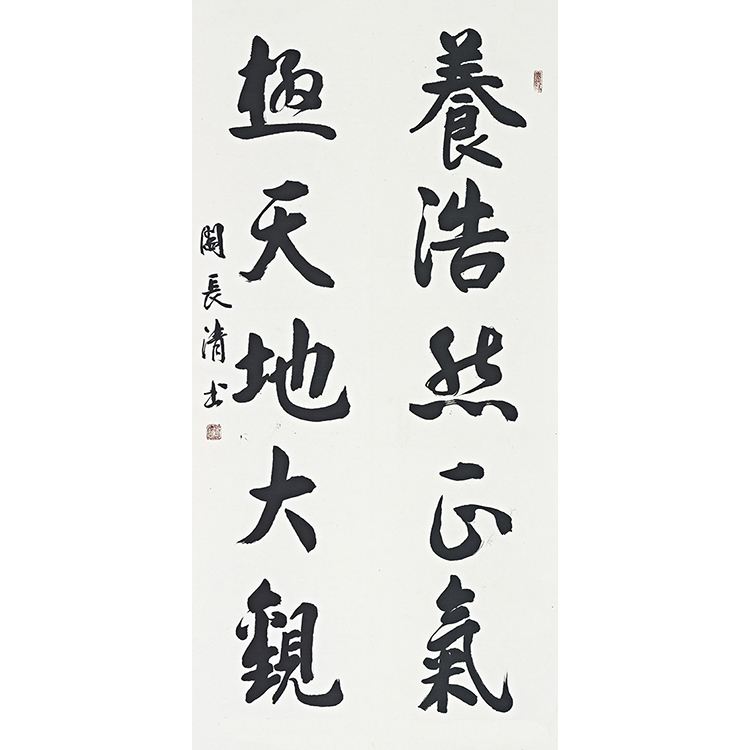 養浩然正氣
極天地大觀
長清书